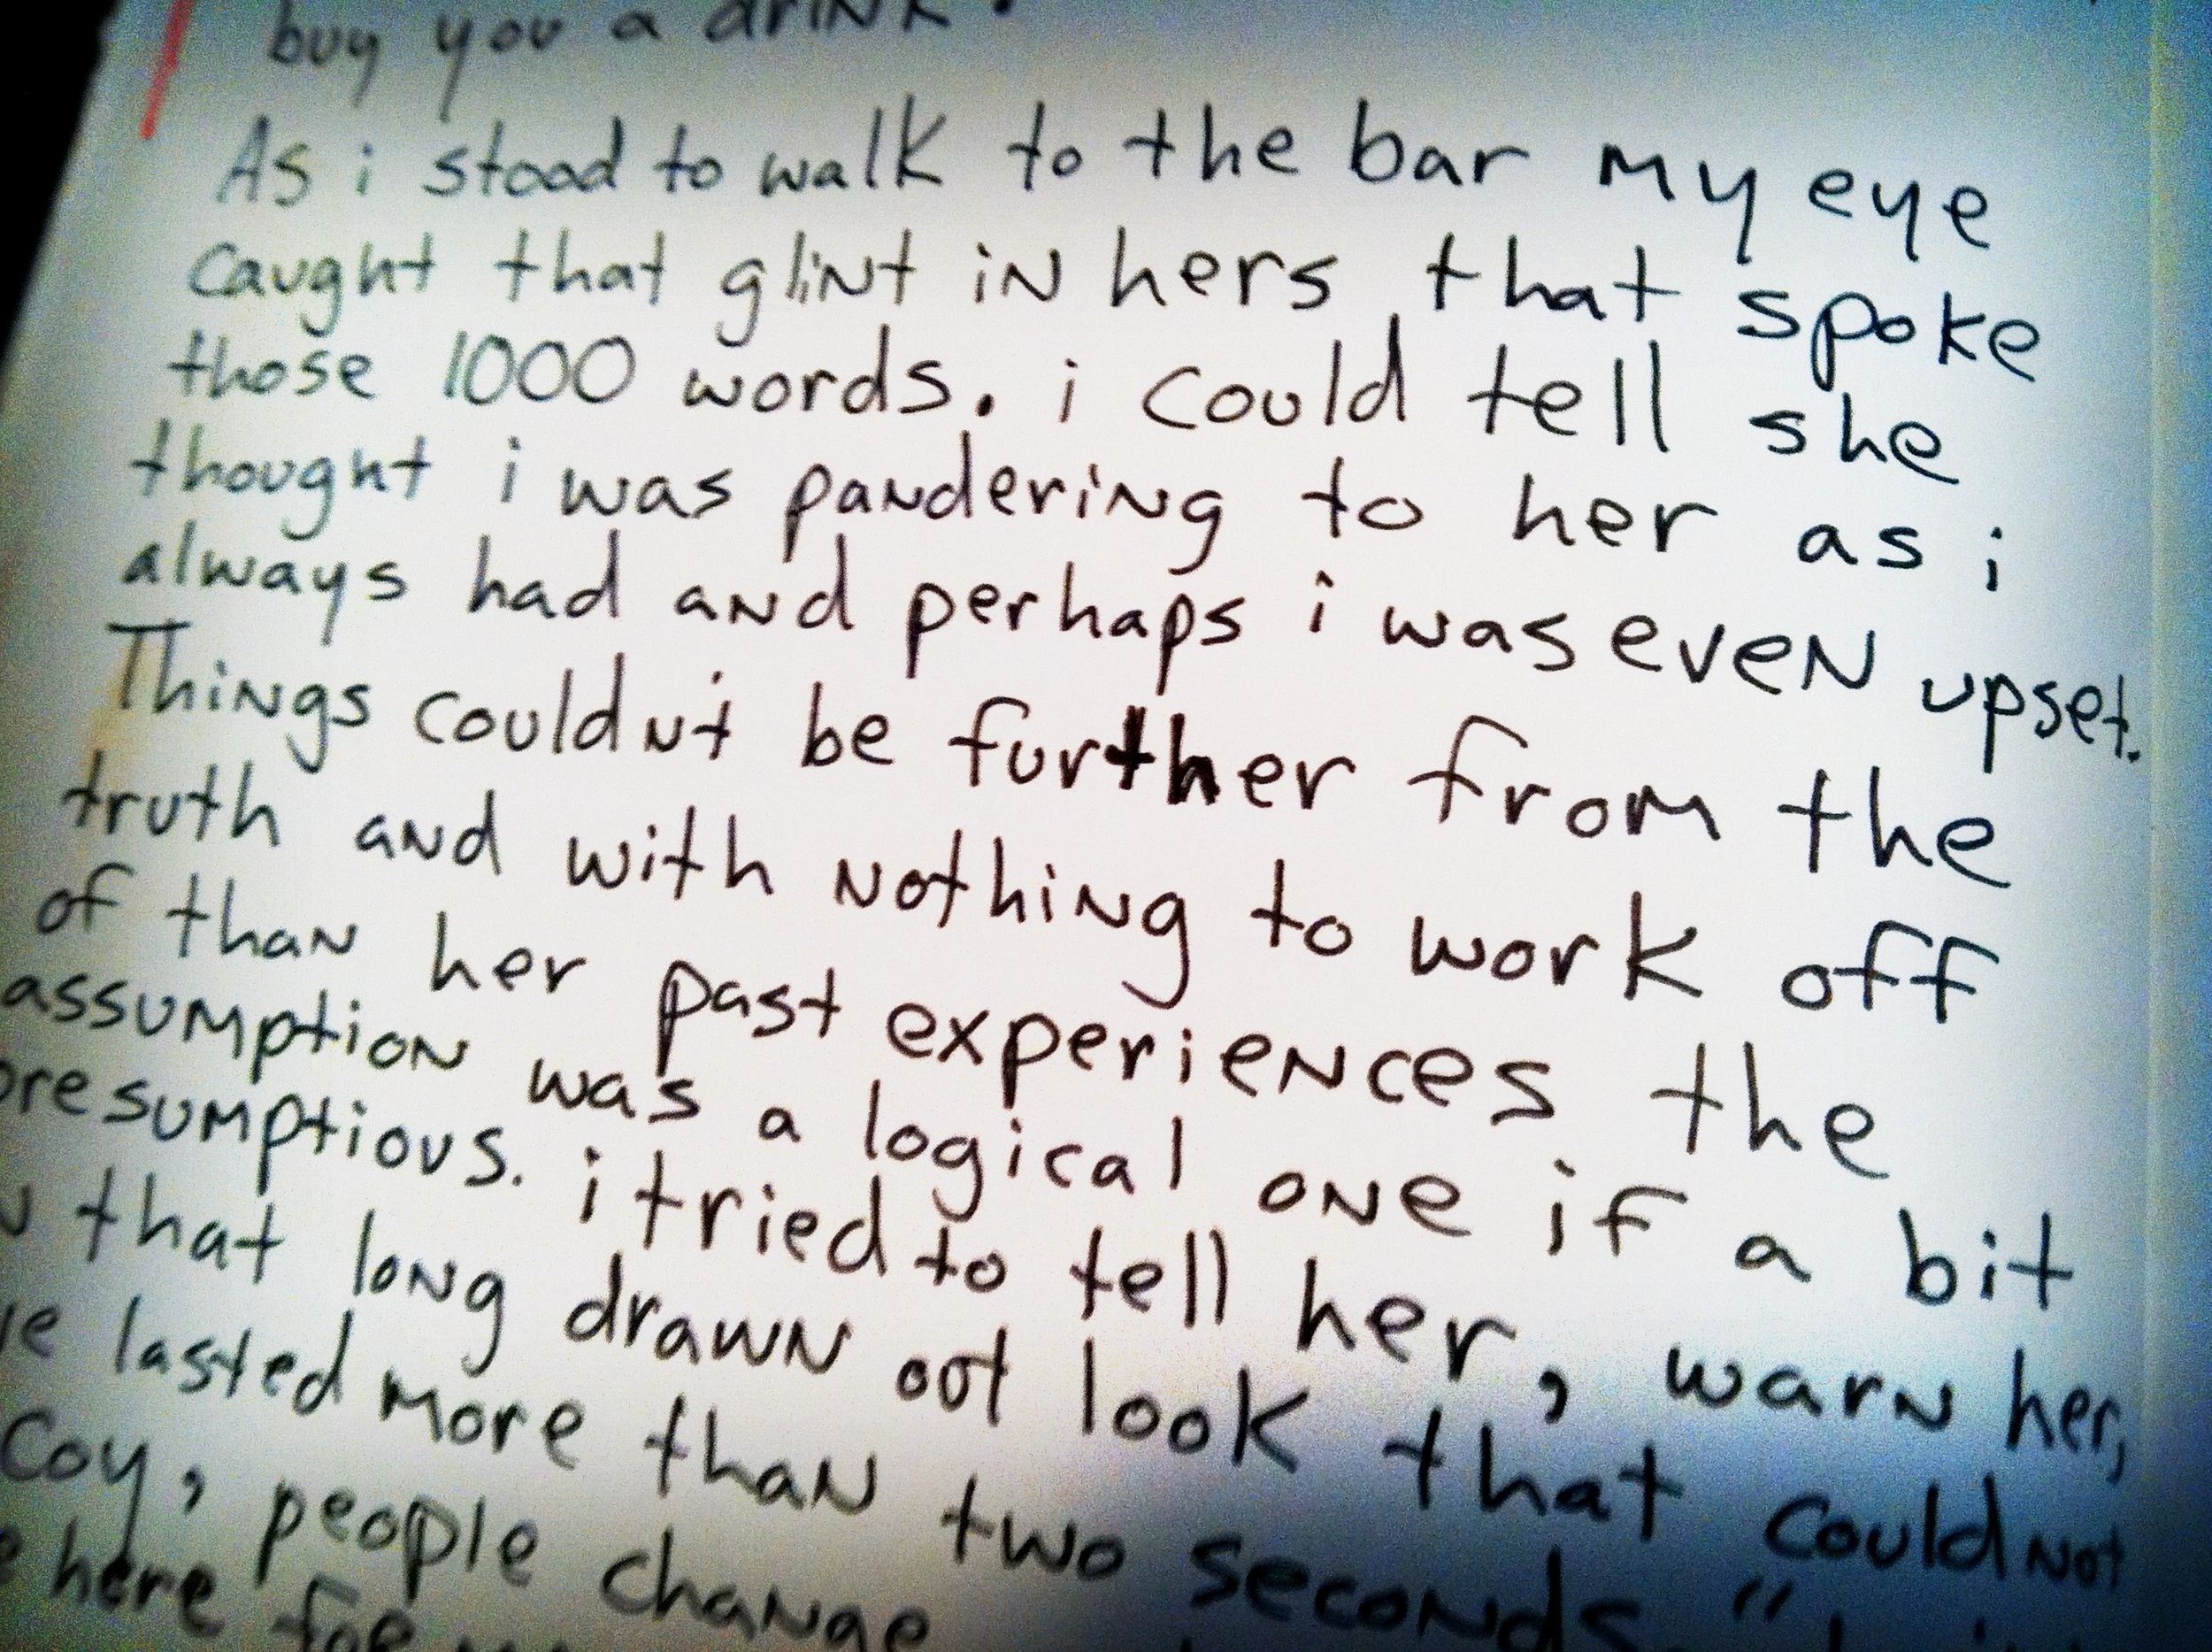 buy you a drink.
As i stood to walk to the bar my eye
caught that glint in hers, that spoke
those 1000 words. i could tell she
thought i was pandering to her as i
always had and perhaps i was even upset.
Things couldn't be further from the
truth and with nothing to work off
of than her past experiences the
assumption was a logical one if a bit
presumptious. i tried to tell her, warn her,
that long drawn out look that could not
lasted more than two seconds. "
Coy, people change
here for